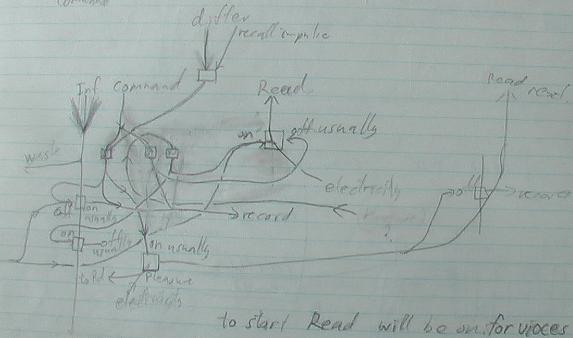 command
differ
recall impulse
Inf
command
Read
Read
on
off usually
waste
electricity
off
record
off
on
usually
record
off
usually
?
on usually
to Rd
Pleasure
electricity
to start Read will be on. for vioces